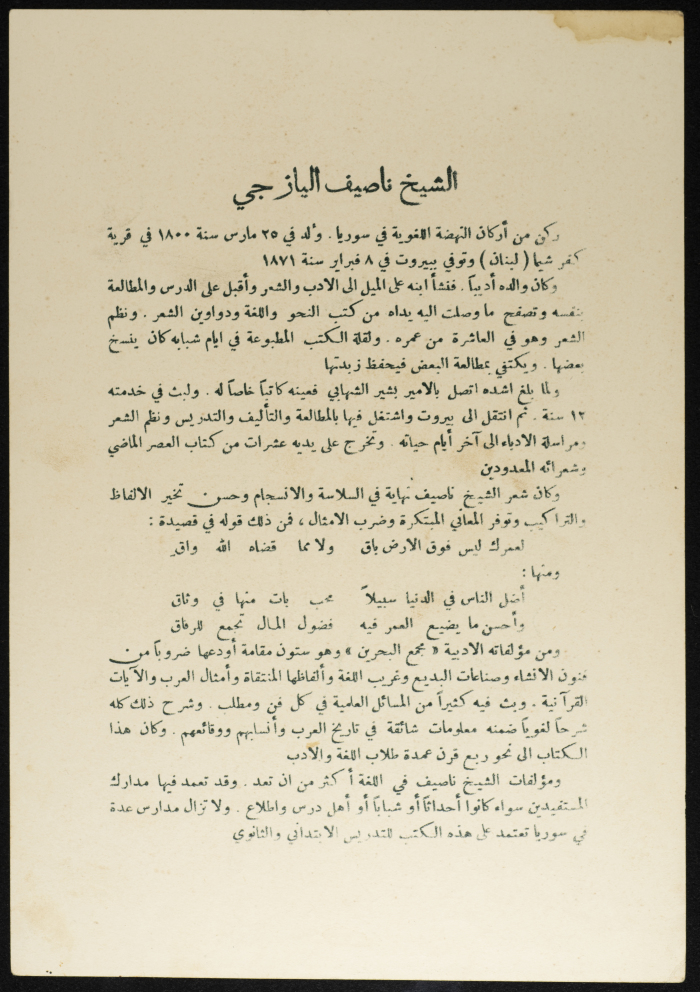 الشيخ ناصيف اليازجي
ركن من أركان النهضة اللغوية في سوريا . ولد في ٢٥ مارس سنة ١٨٠٠ في قرية
كفر شيا ( لبنان ) وتوفي ببيروت في ٨ فبراير سنة ١٨٧١
وكان والده أديباً . فنشأ ابنه على الميل الى الادب والشعر وأقبل على الدرس والمطالعة
بنفسه وتصفح ما وصلت اليه يداه من كتب النحو واللغة ودواوين الشعر . ونظم
الشعر وهو في العاشرة من عمره . ولقلة الكتب المطبوعة في ايام شبابه كان ينسخ
بعضها . ويكتفي بمطالعة البعض فيحفظ زبدتها
ولما بلغ اشده اتصل بالامير بشير الشهابي فعينه كاتباً خاصاً له . ولبث في خدمته
١٢ سنة . ثم انتقل الى بيروت واشتغل فيها بالمطالعة والتأليف والتدريس ونظم الشعر
ومراسلة الادباء الى آخر أيام حياته . وتخرج على يديه عشرات من كتاب العصر الماضي
وشعرائه المعدودين
وكان شعر الشيخ ناصيف نهاية في السلاسة والانسجام وحسن تخير الالفاظ
والتراكيب وتوفر المعاني المبتكرة وضرب الامثال ، فمن ذلك قوله في قصيدة :
لعمرك ليس فوق الارض باق ولا مما قضاه الله واق
ومنها :
أضل الناس في الدنيا سبيلاً محب بات منها في وثاق
وأحسن ما يضيع العمر فيه فضول المال تجمع للرفاق
ومن مؤلفاته الادبية « مجمع البحرين » وهو ستون مقامة أودعها ضروباً من
فنون الانشاء وصناعات البديع وغريب اللغة وألفاظها المنتقاة وأمثال العرب والآيات
القرآنية . وبث فيه كثيراً من المسائل العلمية في كل فن ومطلب . وشرح ذلك كله
شرحاً لغوياً ضمنه معلومات شائقة في تاريخ العرب وأنسابهم ووقائعهم . وكان هذا
الكتاب الى نحو ربع قرن عمدة طلاب اللغة والادب
ومؤلفات الشيخ ناصيف في اللغة أكثر من ان تعد . وقد تعمد فيها مدارك
المستفيدين سواء كانوا أحداثاً أو شباباً أو أهل درس واطلاع . ولا تزال مدارس عدة
في سوريا تعتمد على هذه الكتب للتدريس الابتدائي والثانوي